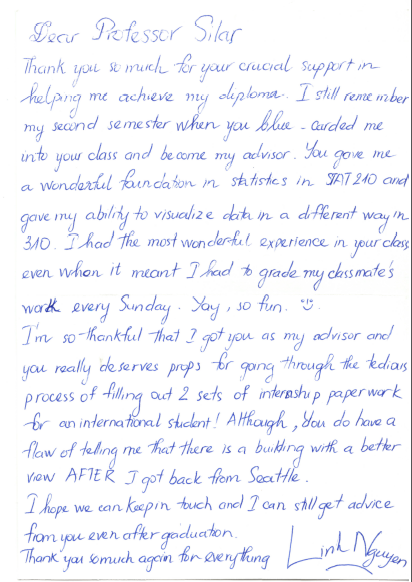 Dear Professor Silar
Thank you so much for your crucial support in
helping me achieve my diploma. I still remember
my second semester when you blue-carded me
into your class and become my advisor. You gave me
a wonderful foundation in statistics in STAT 210 and
gave my ability to visualize data in a different way in
310. I had the most wonderful experience in your class
even when it meant I had to grade my classmate's
work every Sunday. Yay, so fun. ☺
I'm so thankful that I got you as my advisor and
you really deserves props for going through the tedious
process of filling out 2 sets of internship paperwork
for an international student! Although, You do have a
flaw of telling me that there is a building with a better
view AFTER I got back from Seattle.
I hope we can keep in touch and I can still get advice
from you even after gaduation.
Thank you so much again for everything Linh Nguyen